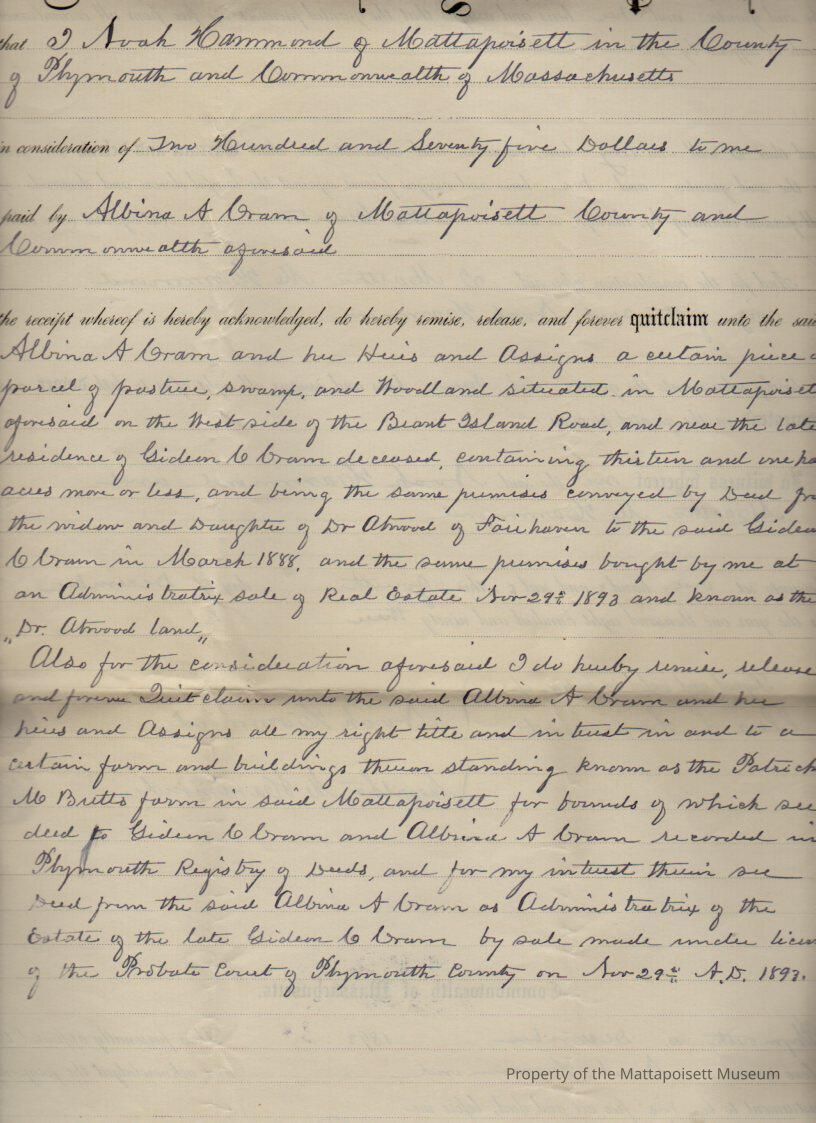 that I Noah Hammond of Mattapoisett in the County
of Plymouth and Commonwealth of Massachusetts
in consideration of Two Hundred and Seventy five Dollars to me
paid by Albina A Cram of Mattapoisett County and
Commonwealth aforesaid
the receipt whereof is hereby acknowledged, do hereby remise, release, and forever quitclaim unto the said
Albina A Cram and her Heirs and Assigns a certain piece o
parcel of pasture, swamp, and Woodland situated in Mattapoiset
aforesaid on the West side of the Brant Island Road, and near the late
residence of Gideon C Cram deceased, containing thirteen and one ha
acres more or less, and being the same premises conveyed by Deed fr
the widow and Daughter of Dr Atwood of Fairhaven to the said Gideo
C Cram in March 1888, and the same premises bought by me at
an Administratrix sale of Real Estate Nov 29th 1893 and known as the
"Dr. Atwood land"
Also for the consideration aforesaid I do hereby remise, release
and forever Quitclaim unto the said Albina A Cram and her
heirs and Assigns all my right title and interest in and to a
certain farm and buildings thereon standing known as the Patrick
M Butts farm in said Mattapoisett for bounds of which see
deed to Gideon C Cram and Albina A Cram recorded in
Plymouth Registry of Deeds, and for my interest therein see
Deed from the said Albina A Cram as Administratrix of the
Estate of the late Gideon C Cram by sale made under licen
of the Probate Court of Plymouth County on Nov 29th A.D. 1893.
Property of the Mattapoisett Museum